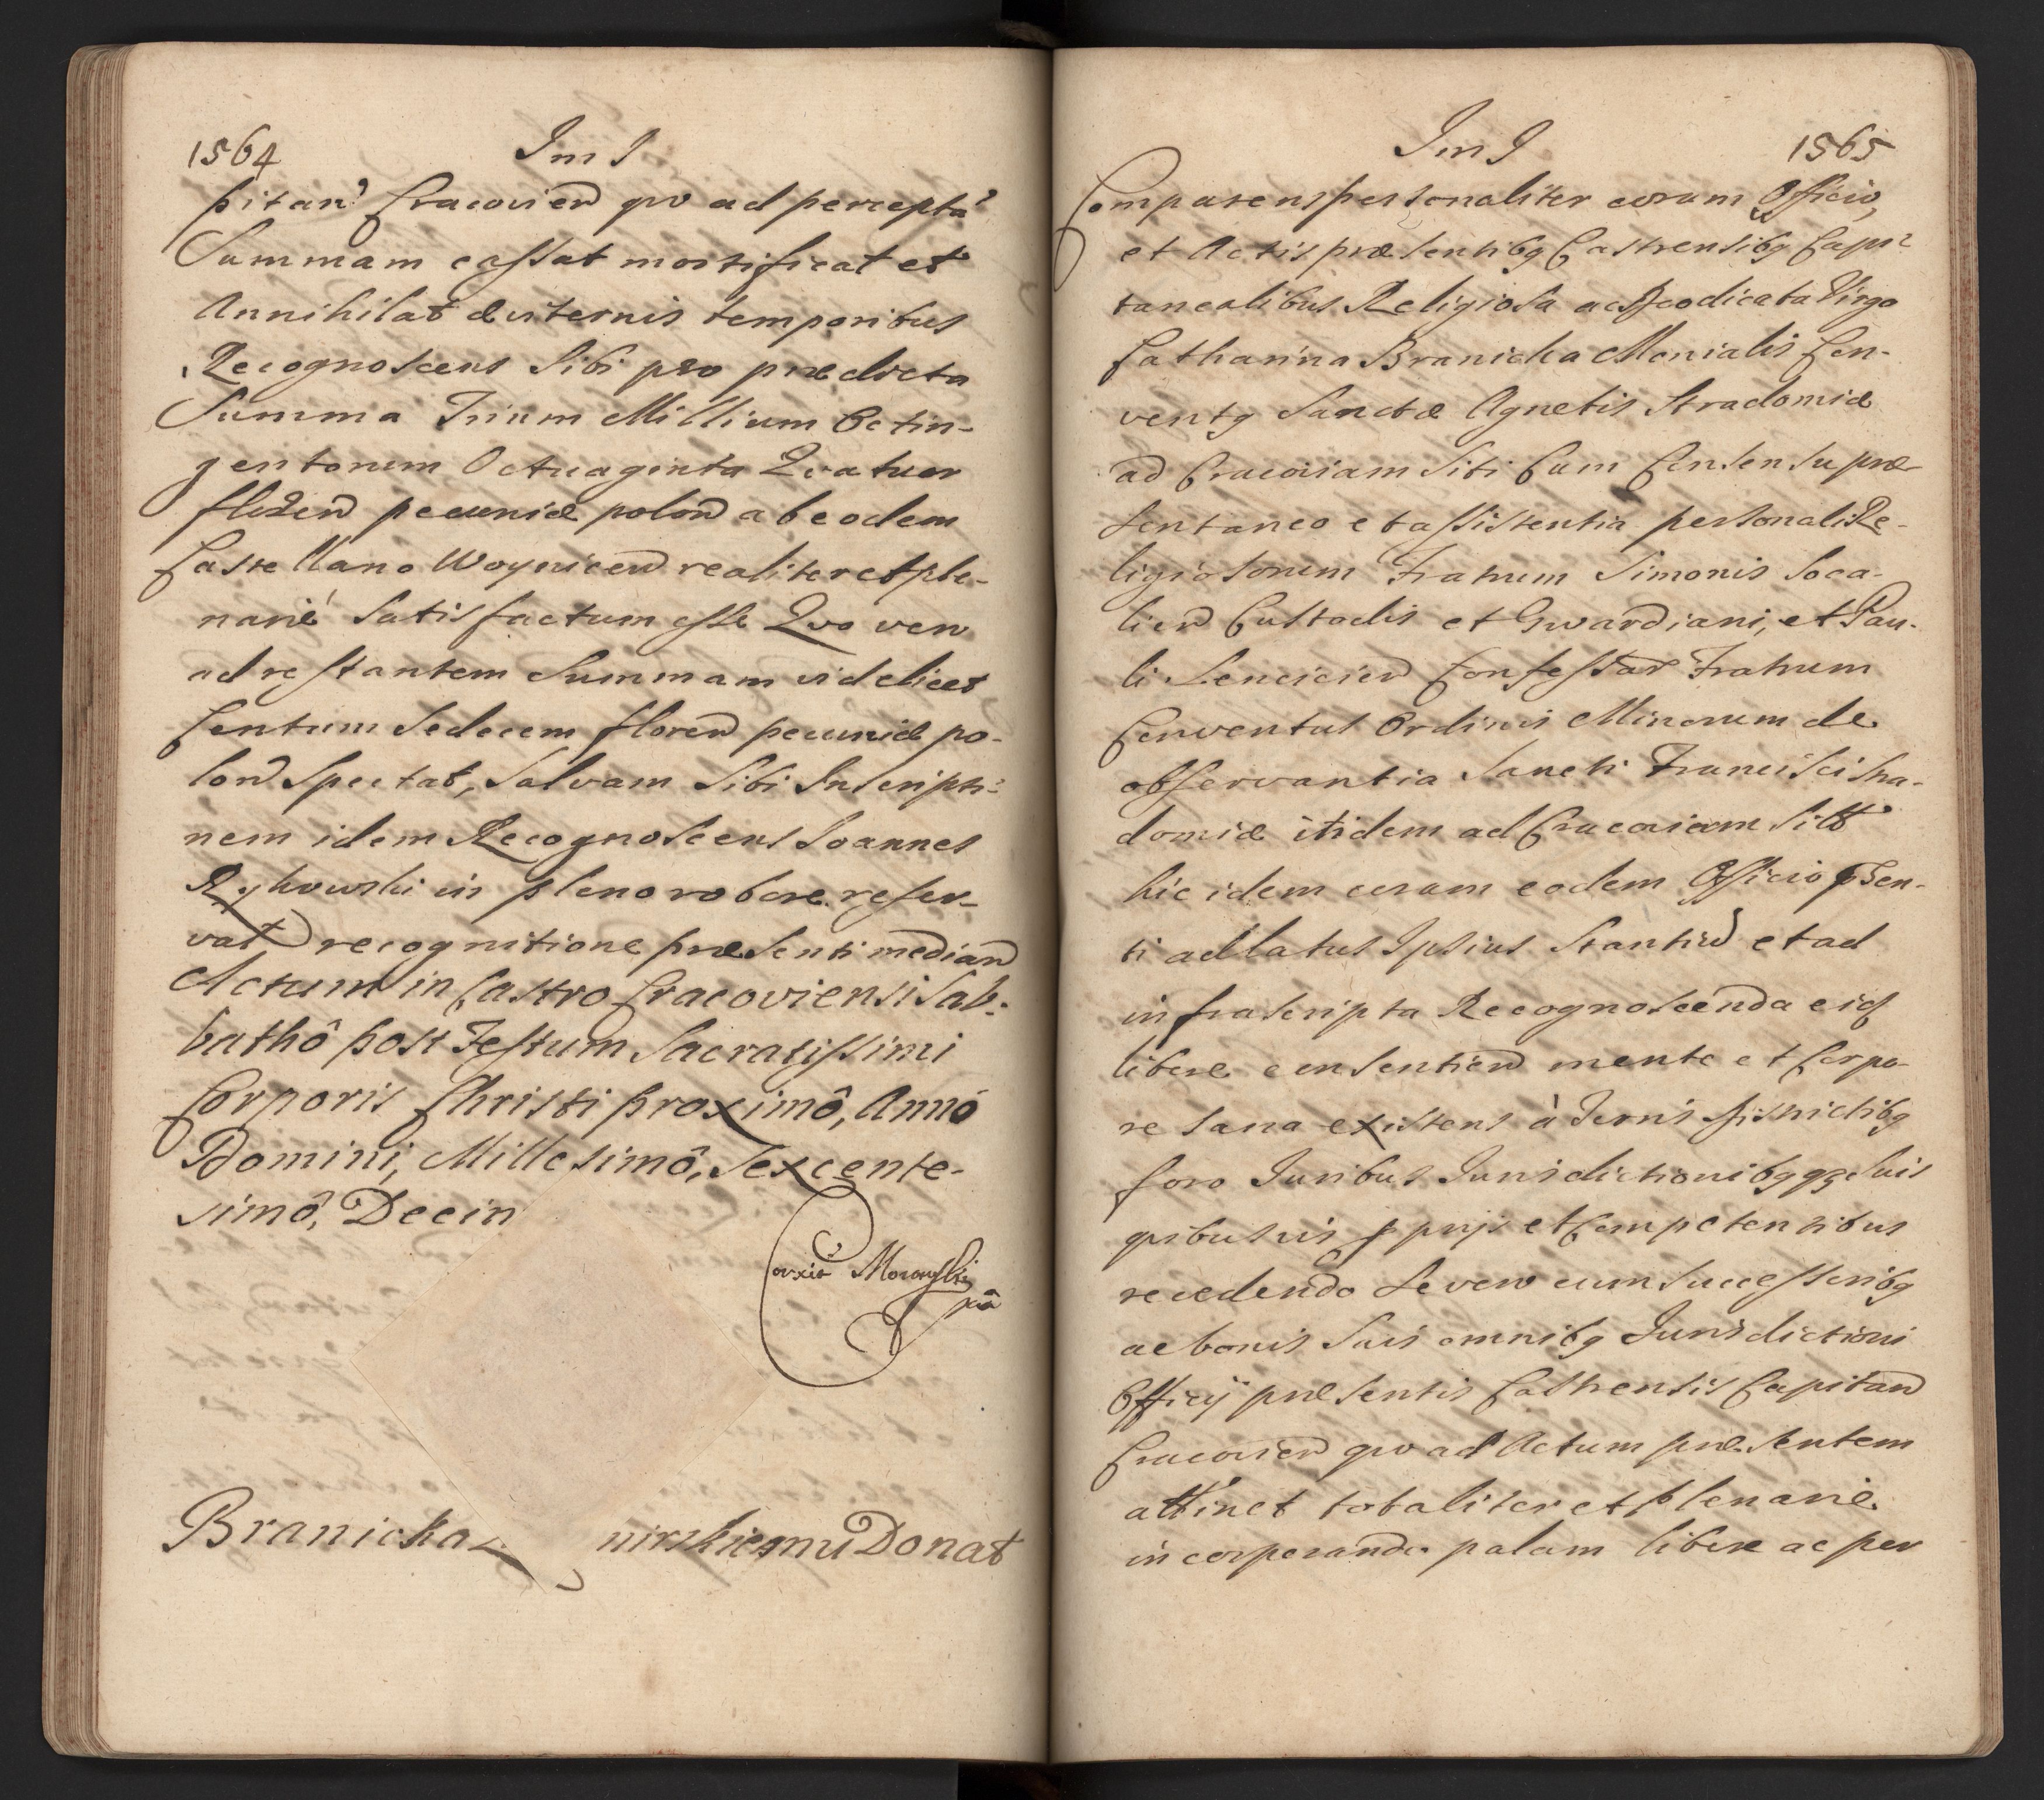 1564 Im I
pitan' Cracovien quo ad percepta'
Summam cassat mortificat et
Annihilat æviternis temporibus
Recognoscens Sibi pro prædicta
Summa Trium Millium Octin-
gentorum Octuaginta Quatuor
floren pecuniæ polon ab eodem
Castellano Woynicen realiter et ple-
nariè satisfactum esse Quo vero
ad restantem Summam videlicet
Centum Sedecem floren pecuniæ po-
lon Spectat, Salvam Sibi Inscripti-
nem idem Recognoscens Joannes
Rykowski in pleno robore reser-
vat recognitione præsenti median
Actum in Castro Cracoviensi Sab-
bathô post Festum Sacratissimi
Corporis Christi proximô, Annô
Domini, Millesimô, Sexcente-
simô, Decin
Covxit Morawski
pia
Branicka nirskiemu Donat
Im I 1565
Comparens personaliter coram Officio,
et Actis præsentibq Castrensibq Capi-
tanealibus Religiosa ac Deodicata Virgo
Catharina Branicka Monialis Con-
ventq Sanctæ Agnetis Stradomiæ
ad Cracoviam Siti Cum Consensu præ
sentaneo et assistentia personali Re-
ligiosorum Fratrum Simonis Soca-
lien Custodis et Gwardiani, et Pau-
li Lencicien Confessar Fratrum
Conventus Ordinis Minorum de
observantia Sancti Francisci Stra-
domiæ itidem ad Cracoviam Sitt
hic idem coram eodem Officio psen-
ti ad latus Ipsius Stantiu et ad
infrascripta Recognoscenda eidq
libere consentien mente et Corpo-
re sana existens à Terris Districtibq
foro Juribus Jurisdictionibq qz Suis
quibusvis pprijs et Competentibus
recedendo se vero cum Successoribq
ac bonis Suis omnibq Jurisdictioni
Officij præsentis Castrensis Capitan
Cracovien quo ad Actum præsentem
attinet totaliter et plenarie
incorporando palam libere ac per